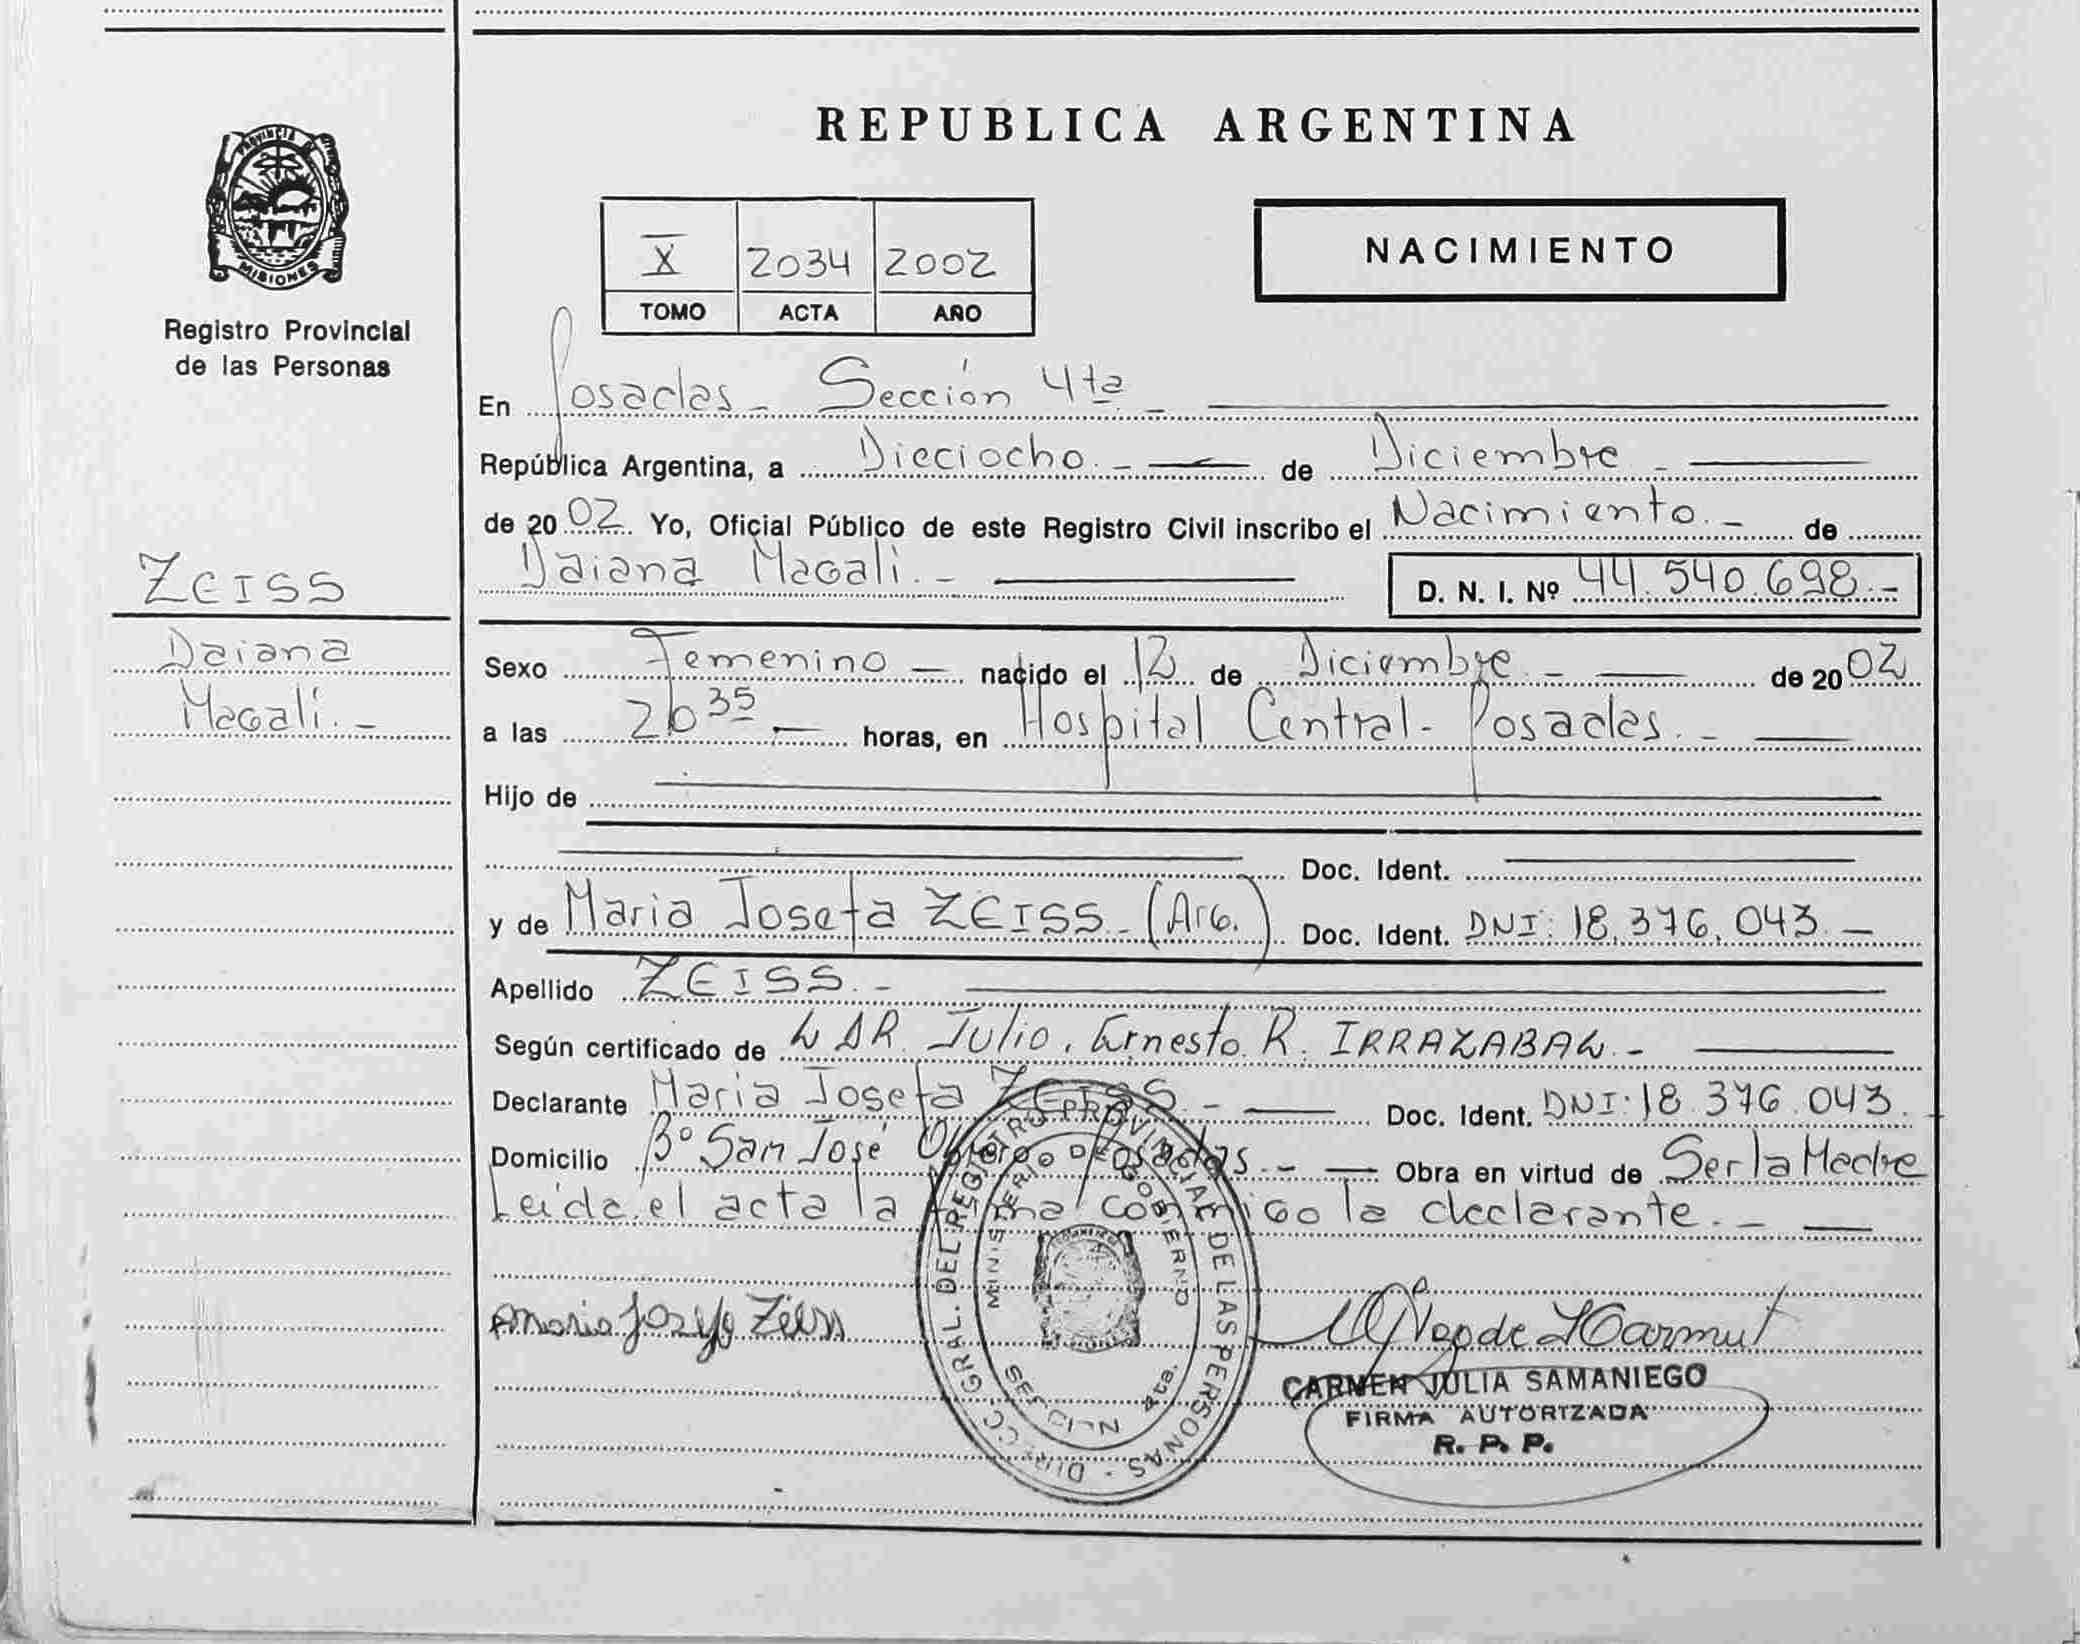 REPUBLICA ARGENTINA
PROVINCIA DE
MISIONES
Registro Provincial
de las Personas
X 2034 2002
TOMO ACTA AÑO
NACIMIENTO
En Posadas - Sección 4ta. -
República Argentina, a Dieciocho. - de Diciembre -
de 2002. Yo, Oficial Público de este Registro Civil inscribo el Nacimiento. - de
Daiana Magali. - D. N. I. Nº 44.540.698.-
ZEISS
Daiana
Magali. -
Sexo Femenino - nacido el 12 de Diciembre. - de 2002
a las 20 35 horas, en Hospital Central - Posadas. -
Hijo de
Doc. Ident.
y de Maria Josefa ZEISS. - (Arg.) Doc. Ident. DNI: 18.376.043. -
Apellido ZEISS. -
Según certificado de L DR. Julio. Ernesto. R. IRRAZABAL. -
Declarante Maria Josefa ZEISS. - Doc. Ident. DNI: 18.376.043.
Domicilio Bº San José Obrero Posadas. - Obra en virtud de Ser la Madre
Leída el acta la firma conmigo la declarante. -
Maria Josefa Zeiss
DIRECC. GRAL. DEL REGISTRO PROVINCIAL DE LAS PERSONAS -
MINISTERIO DE GOBIERNO
SECCION 4ta.
CARMEN JULIA SAMANIEGO
FIRMA AUTORIZADA
R. P. P.